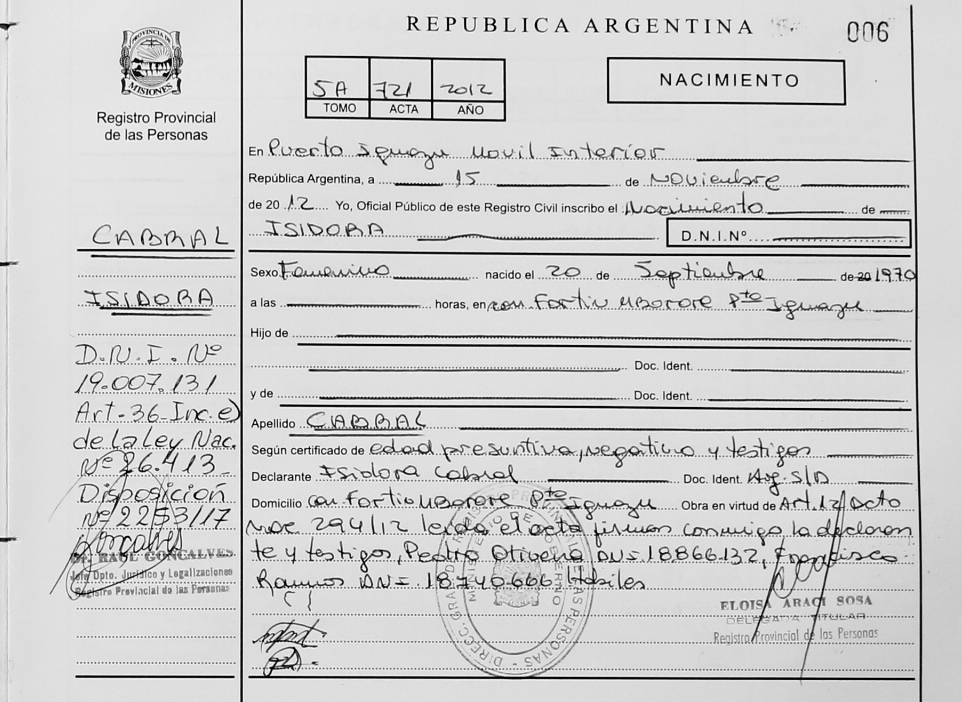 REPUBLICA ARGENTINA
006
PROVINCIA DE
MISIONES
Registro Provincial
de las Personas
5A 721 2012
TOMO ACTA AÑO
NACIMIENTO
En Puerto Iguazu Movil Interior
República Argentina, a 15 de Noviembre
de 2012 Yo, Oficial Público de este Registro Civil inscribo el Nacimiento de
ISIDORA D.N.I.Nº
Sexo Femenino nacido el 20 de Septiembre de 20 1970
a las horas, en com Fortin Mborore Pto Iguazu
Hijo de
Doc. Ident.
y de Doc. Ident.
Apellido CABRAL
Según certificado de edad presuntiva, negativo y testigos
Declarante Isidora Cabral Doc. Ident. Arg. S/D
Domicilio com Fortin Mborore Pto Iguazu Obra en virtud de Art. 12/ Dcto
Nac 294/12 leida el acta firman conmigo la declaran
te y testigos, Pedro DNI= 18866.132, Francisco
Ramos DNI= 18.740.666 Habiles
CABRAL
ISIDORA
D.N.I. Nº
19.007.131
Art. 36 Inc. e)
de la ley Nac.
Nº 26.413
Disposicion
Nº 2253/17
Dr. RAUL GONCALVES
Jefe Dpto. Jurídico y Legalizaciones
Registro Provincial de las Personas
ELOISA ARACI SOSA
DELEGADA TITULAR
Registro Provincial de las Personas